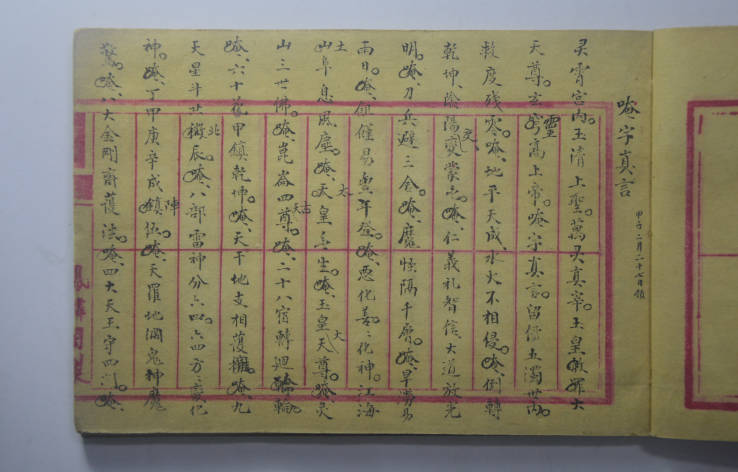 唵字真言
甲子二月二十七日領
灵霄宮內。玉清上聖。萬灵真宰。玉皇敕罪大
天尊。玄穹高上帝。唵字真言。留傳五濁世內。
救度殘零。唵、地平天成、水火不相侵。唵、倒轉
乾坤、陰陽變蒙屯。唵、仁義礼智信、大道放光
明。唵、刀兵避三舍。唵、魔怪隔千層。唵、旱澇易
雨日。唵、饑饉易豐年登。唵、惡化善。善化神。江海
山阜息風塵。唵、天皇長生。唵、玉皇天尊。唵、灵
山三世佛。唵、崑崙四尊。唵、二十八宿轉迴輪
唵、六十花甲鎮乾坤。唵、天干地支相護擁。唵、九
天星斗北極辰。唵、八部雷神分六四。六四方方變化
神。唵、丁甲庚辛成鎮伍。唵、天羅地網鬼神魔
驚。唵、八大金剛齊護法。唵、四大天王守四門。唵、